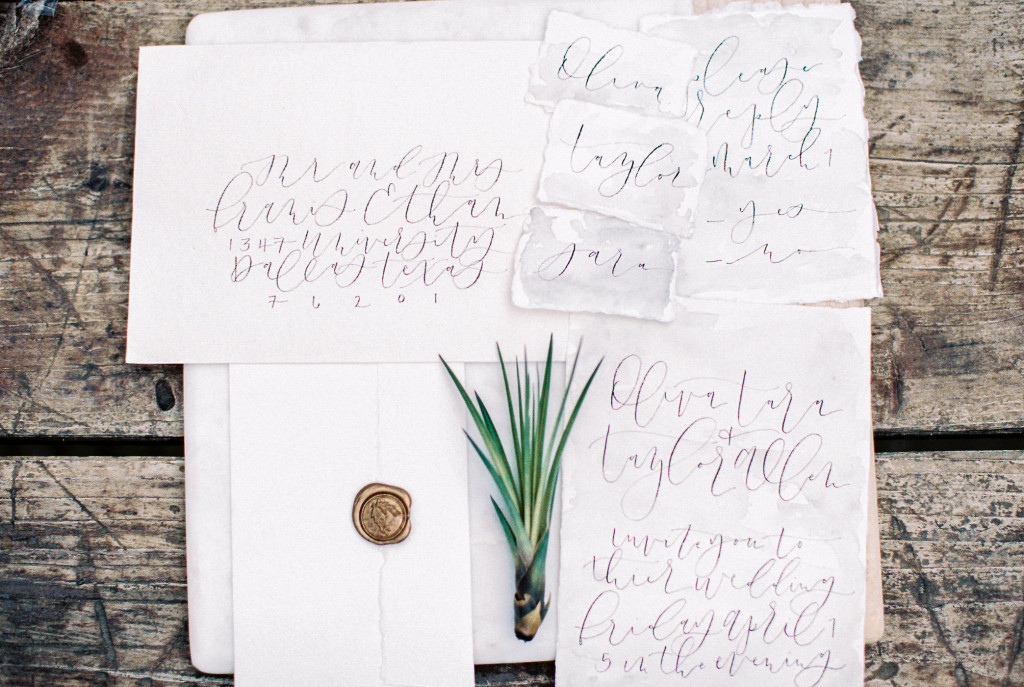 Mr and Mrs
Travis Ethan
1347 University
Dallas texas
76201
Oliva
taylor
sara
please
reply
march 1
_ yes
_ no
Oliva tara
&
taylor Allen
invite you to
thier wedding
friday april 1
5 in the evening